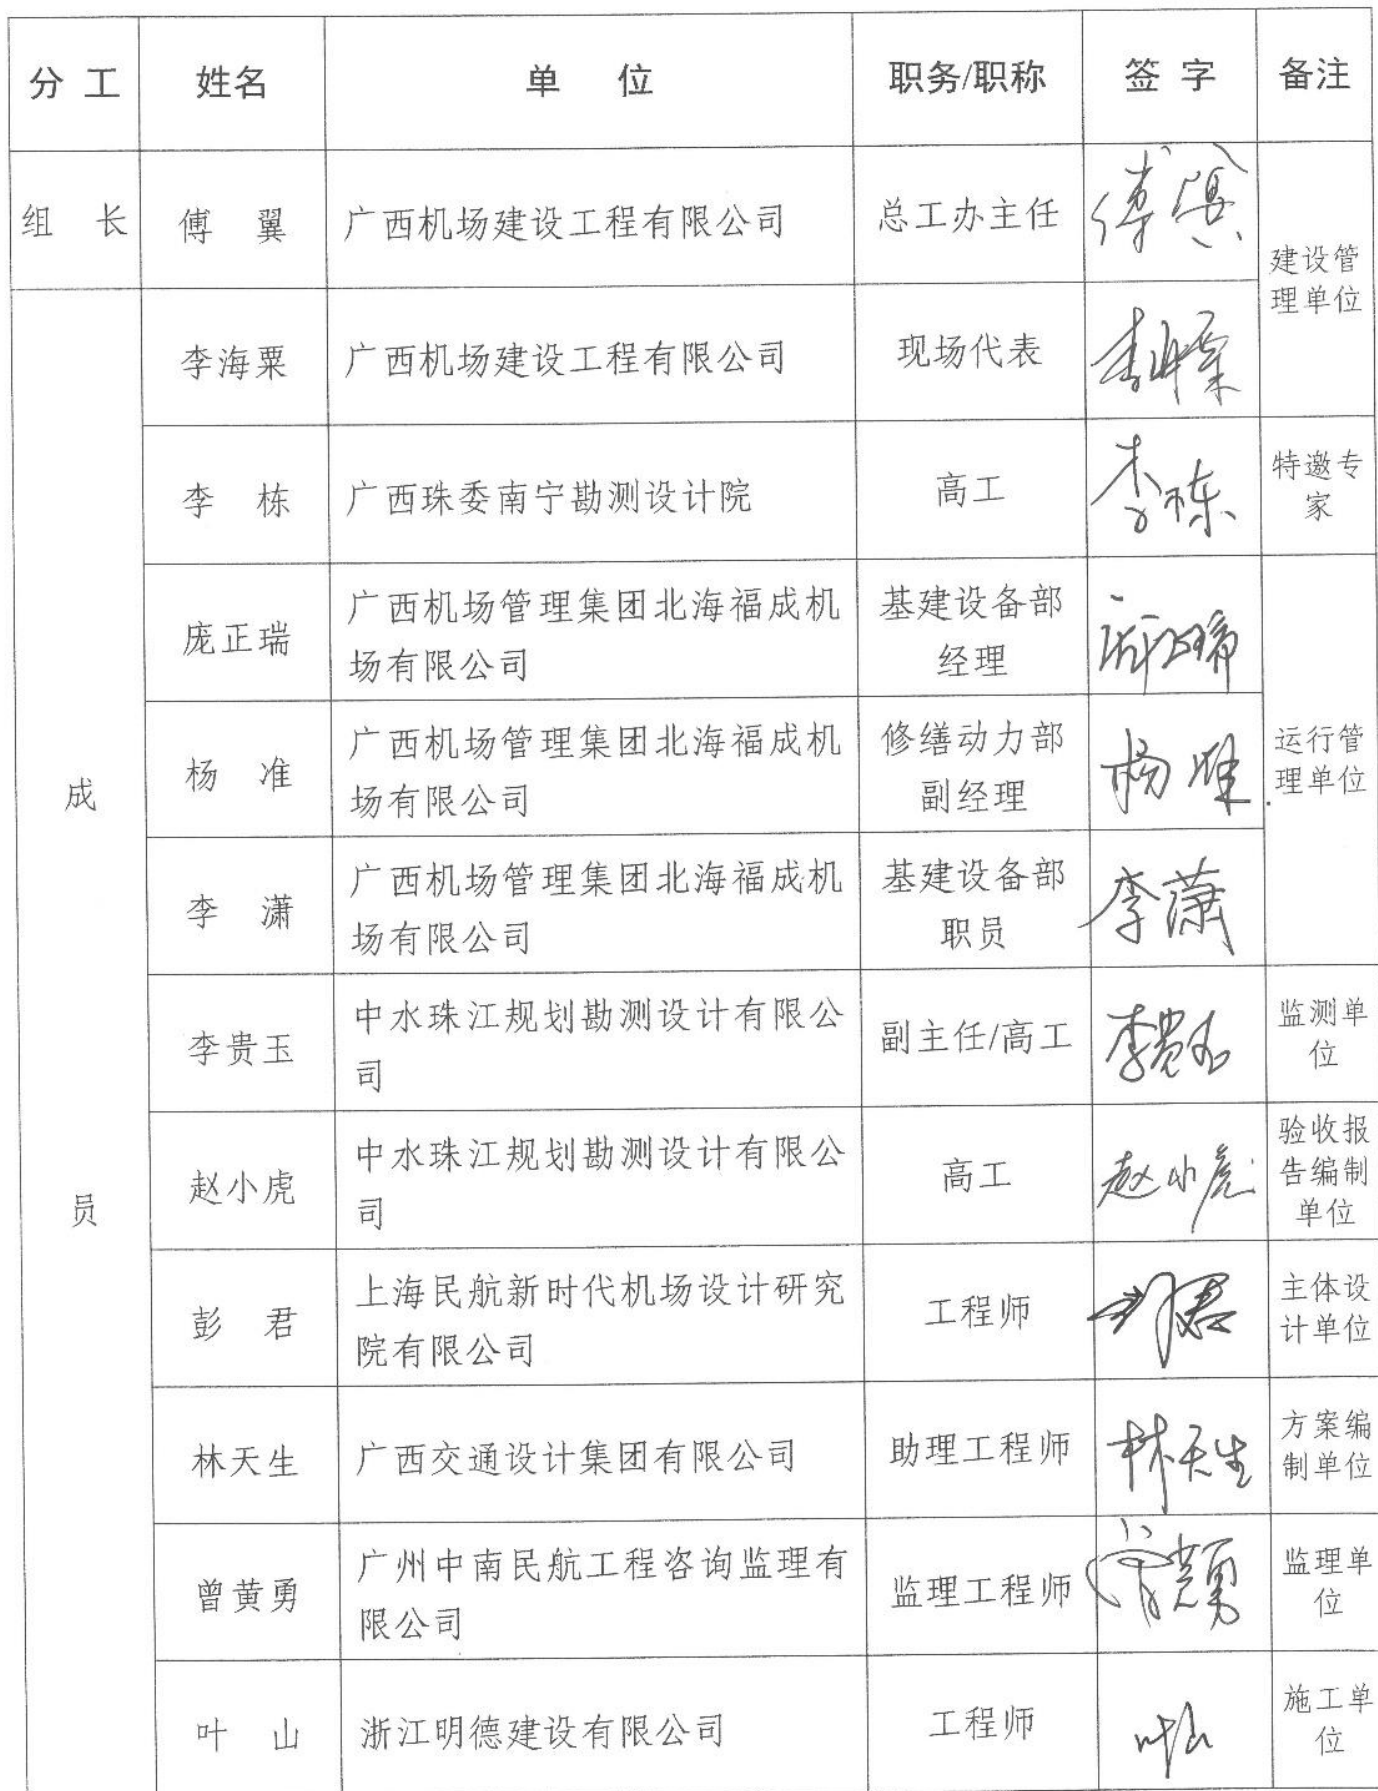 分 工 姓名 单 位 职务/职称 签 字 备注
组 长 傅 翼 广西机场建设工程有限公司 总工办主任 傅翼
建设管
理单位
成
员
李海粟 广西机场建设工程有限公司 现场代表 李海粟
李 栋 广西珠委南宁勘测设计院 高工 李栋
特邀专
家
庞正瑞
广西机场管理集团北海福成机
场有限公司
基建设备部
经理
庞正瑞
运行管
理单位
杨 准
广西机场管理集团北海福成机
场有限公司
修缮动力部
副经理
杨准
李 潇
广西机场管理集团北海福成机
场有限公司
基建设备部
职员
李潇
李贵玉
中水珠江规划勘测设计有限公
司
副主任/高工
李贵玉
监测单
位
赵小虎
中水珠江规划勘测设计有限公
司
高工
赵小虎
验收报
告编制
单位
彭 君
上海民航新时代机场设计研究
院有限公司
工程师
彭君
主体设
计单位
林天生 广西交通设计集团有限公司 助理工程师 林天生
方案编
制单位
曾黄勇
广州中南民航工程咨询监理有
限公司
监理工程师
曾黄勇
监理单
位
叶 山 浙江明德建设有限公司 工程师 叶山
施工单
位